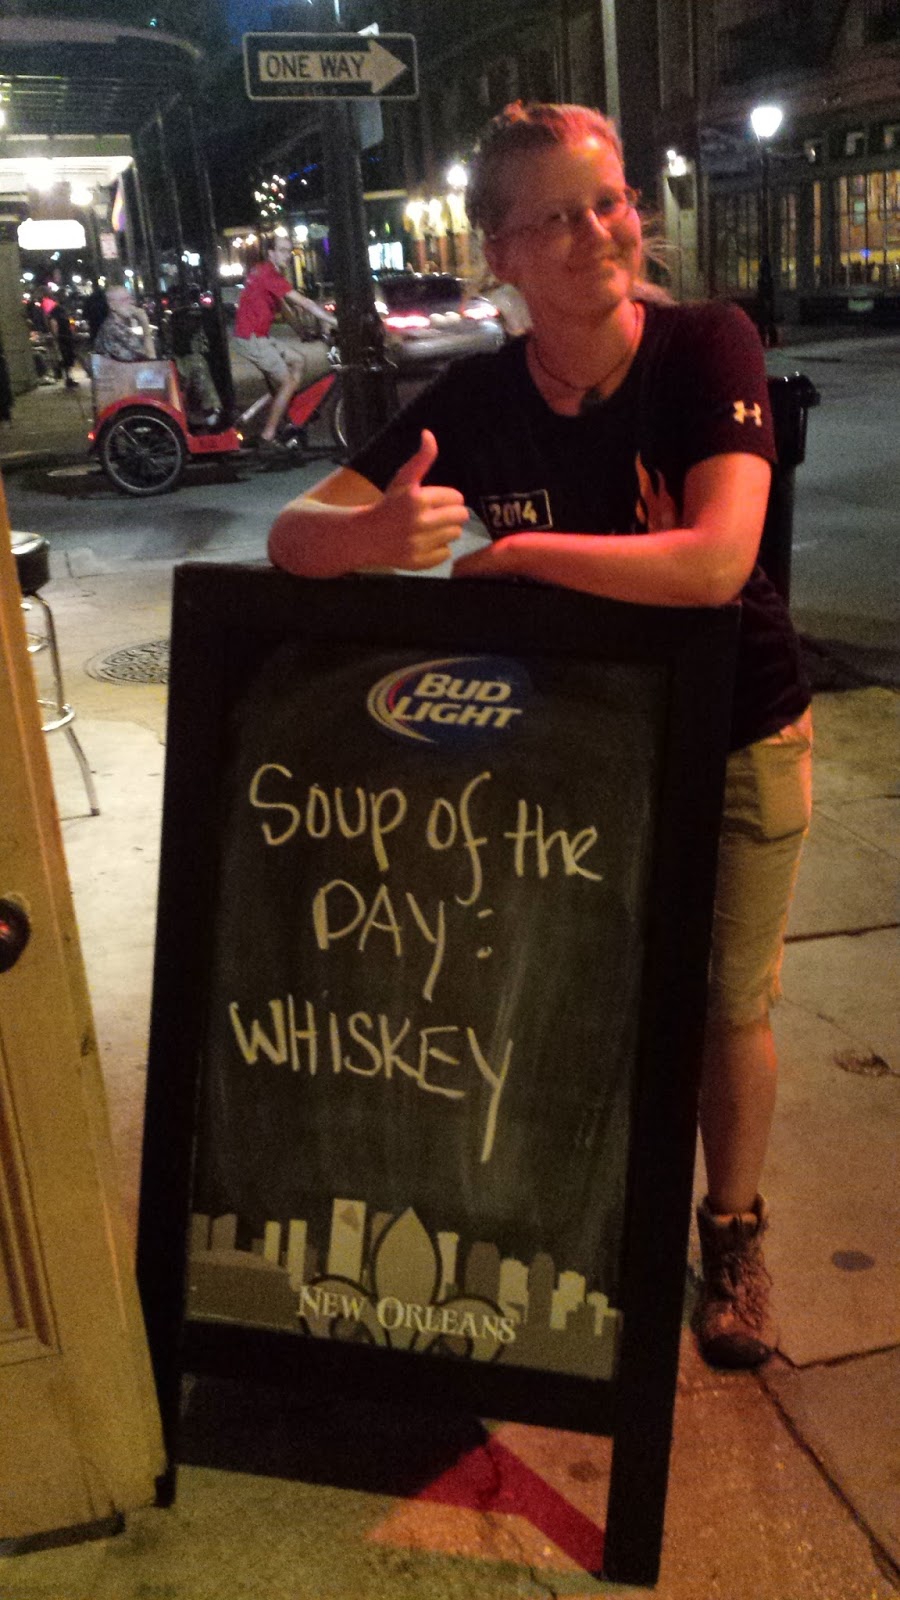 ONE WAY
2014
BUD
LIGHT
Soup of the
DAY:
WHISKEY
NEW ORLEANS